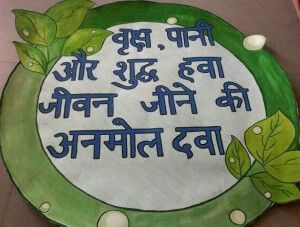 वृक्ष , पानी
और शुद्ध हवा
जीवन जीने की
अनमोल दवा